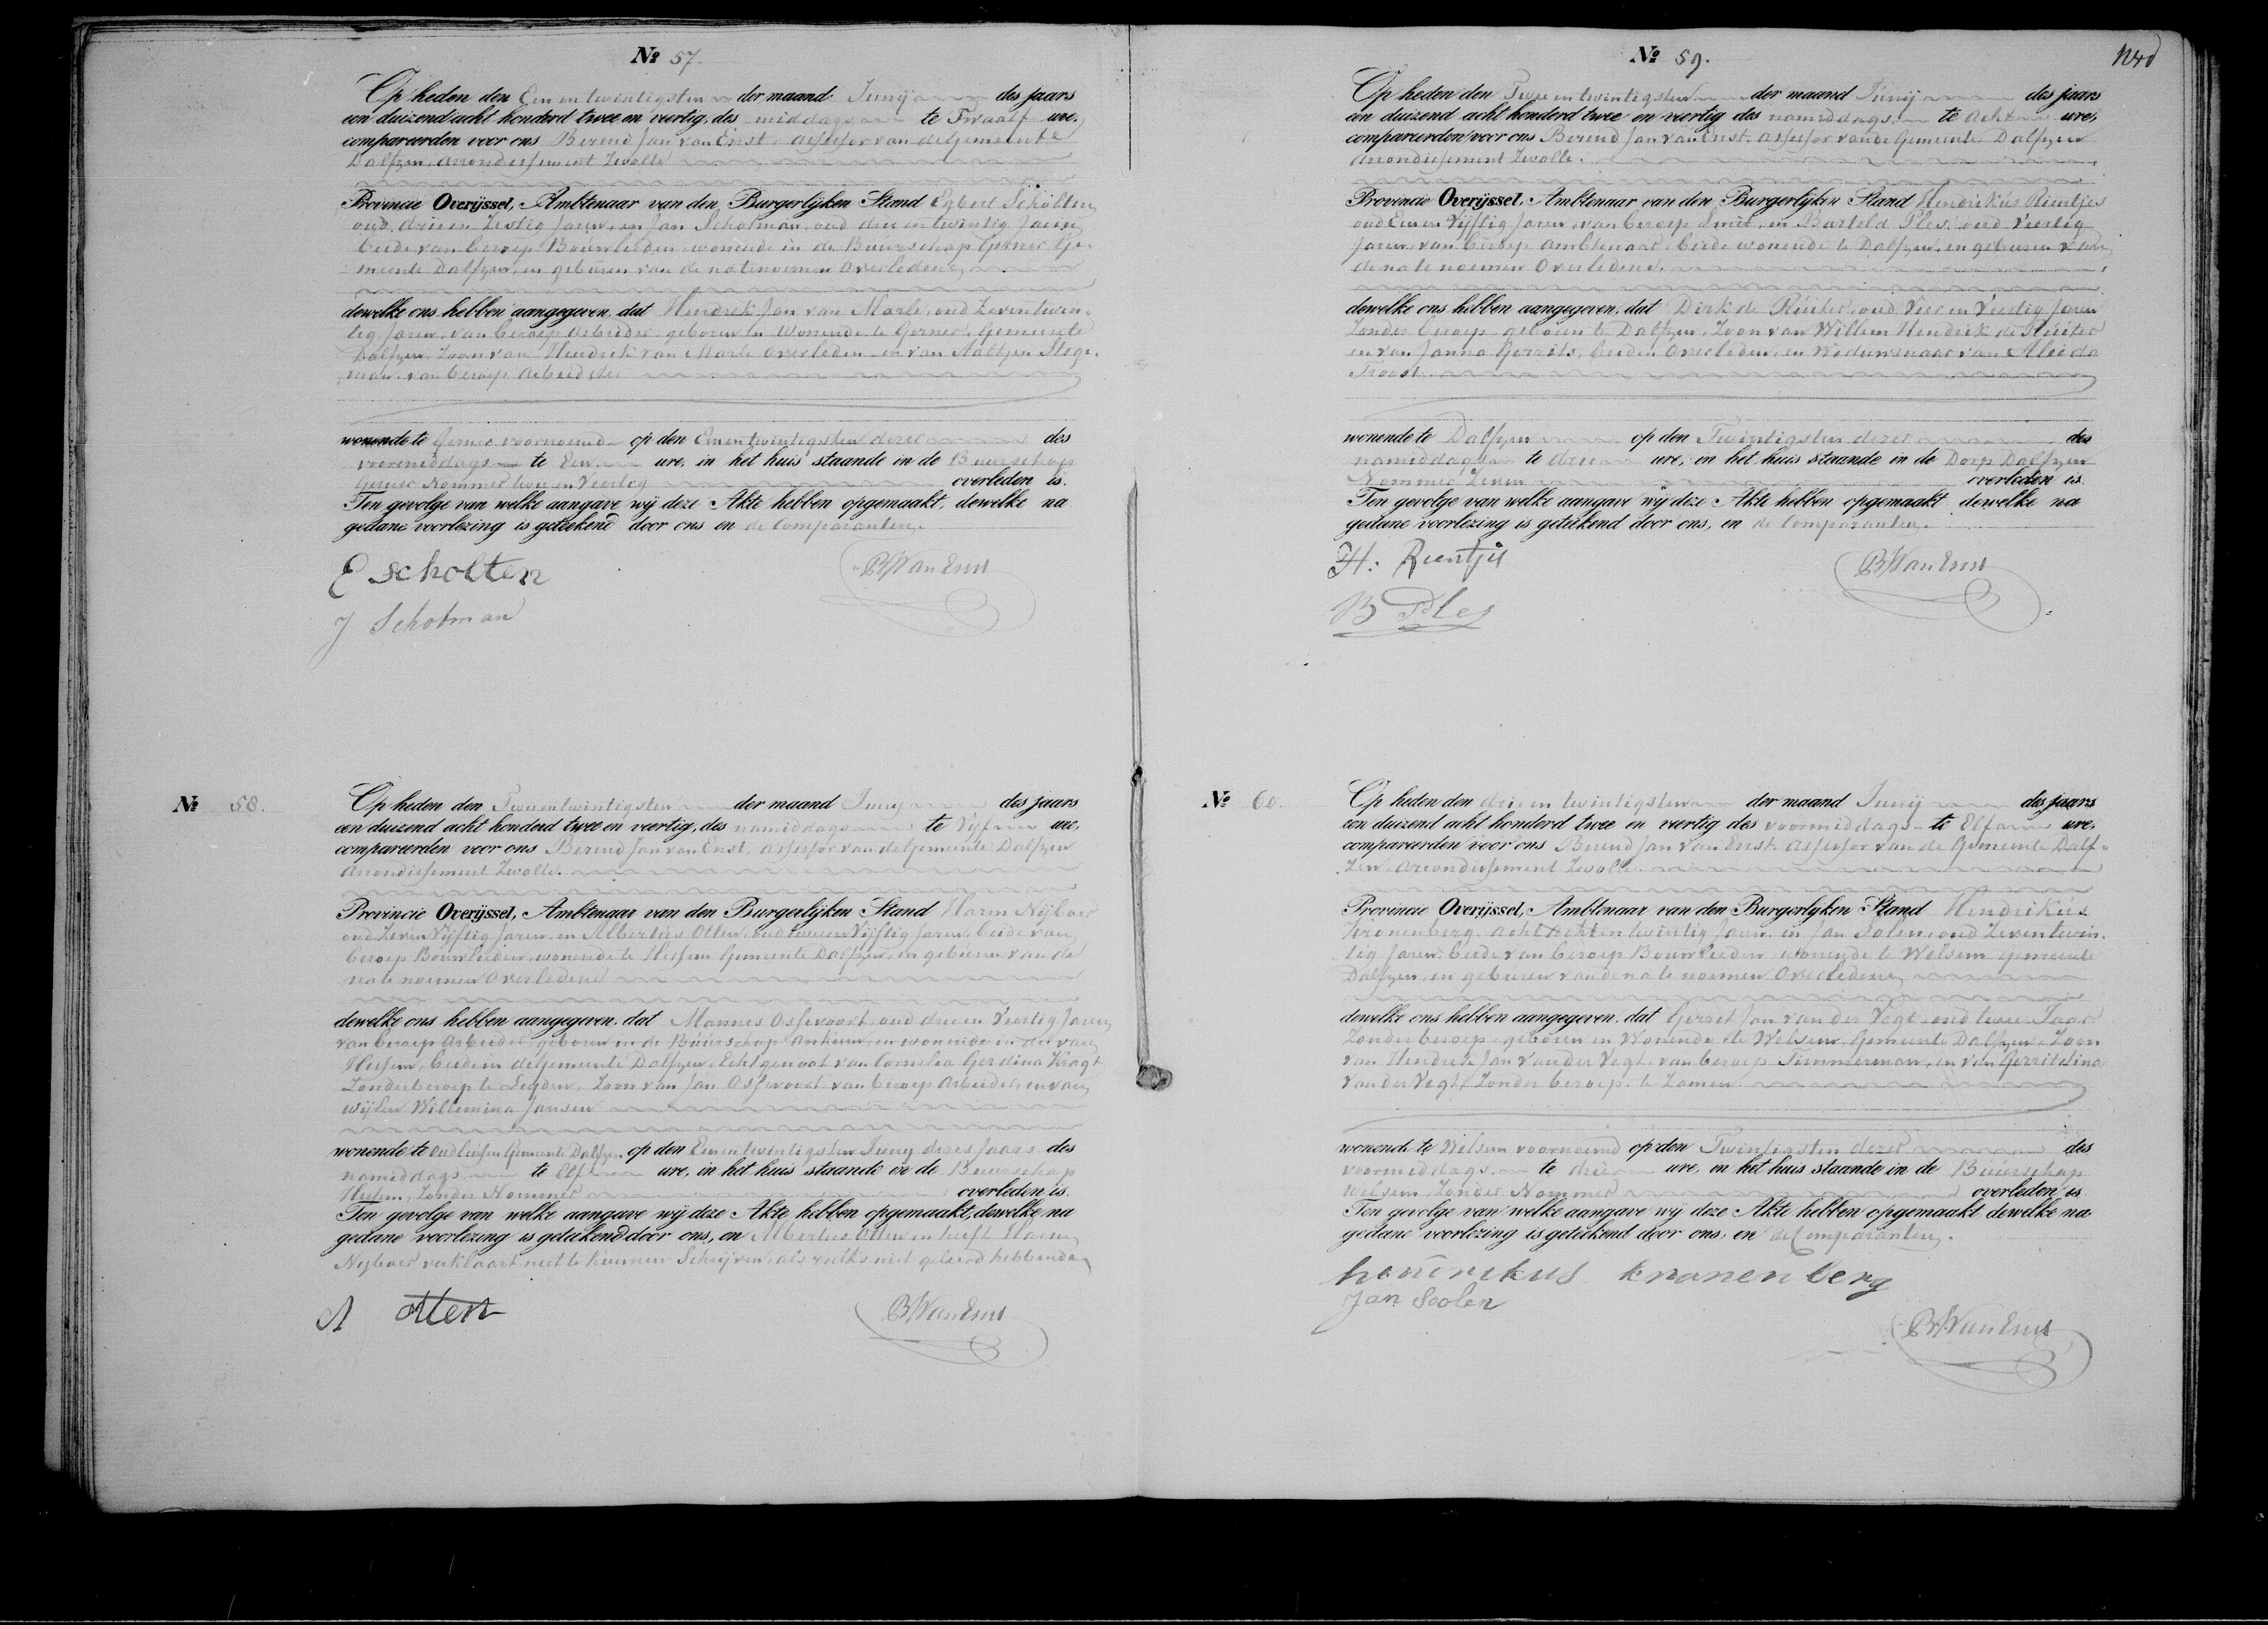 Nº 57.
Op heden den Een en twintigsten der maand Junij des jaars
een duizend acht honderd twee en veertig, des middags te Twaalf ure,
compareerden voor ons Berend Jan van Enst Assessor van de Gemeente
Dalfzen, arrondissement Zwolle
Provincie Overijssel, Ambtenaar van den Burgerlijken Stand Egbert Scholten
oud drie en Zestig Jaren, en Jan Scholman, oud drie en twintig Jaren
beide van beroep Bouwlieden, wonende in de Buurschap Gerner Ge-
meente Dalfzen, en geburen van de natenoemen Overledene
dewelke ons hebben aangegeven, dat Hendrik Jan van Marle, oud Zeventwin-
tig Jaren, van beroep Arbeider, geboren en Wonende te Gerner, Gemeente
Dalfzen, Zoon van Hendrik van Marle Overleden en van Aaltjen Stege-
man, van beroep Arbeidster
wonende te Gerner voornoemd op den Eenentwintigsten dezer des
voormiddags te Een ure, in het huis staande in de Buurschap
Gerner Nommer twee en Veertig overleden is.
Ten gevolge van welke aangave wij deze Akte hebben opgemaakt, dewelke na
gedane voorlezing is geteekend door ons en de Comparanten.
E scholten
BJVanEnst
J Scholman
Nº 58.
Op heden den Tweeentwintigsten der maand Junij des jaars
een duizend acht honderd twee en veertig, des namiddags te Vijf ure,
compareerden voor ons Berend Jan van Enst, Assessor van de Gemeente Dalfzen
Arrondissement Zwolle.
Provincie Overijssel, Ambtenaar van den Burgerlijken Stand Harm Nijboer
oud Zeven Vijftig Jaren en Albertus Otten, oud Vijftig Jaren, beide van
beroep Bouwlieden, wonende te Hessum Gemeente Dalfzen, en geburen van de
nate noemen Overledene
dewelke ons hebben aangegeven, dat Mannes Ossevoort, oud drie en Veertig Jaren
van beroep Arbeider, geboren in de Buurschap Ankum, en wonende in die van
Hessum, beide in de Gemeente Dalfzen, Echtgenoot van Cornelia Gerdina Kragt
Zonder beroep te Leyden, Zoon van Jan Ossevoort, van beroep Arbeider, en van
wijlen Willemina Jansen
wonende te Oudleusen Gemeente Dalfzen op den Eenentwintigsten Junij dezes Jaars des
namiddags te Elf ure, in het huis staande in de Buurschap
Hessum, Zonder Nommer overleden is.
Ten gevolge van welke aangave wij deze Akte hebben opgemaakt, dewelke na
gedane voorlezing is geteekend door ons, en Albertus Otten en heeft Harm
Nijboer verklaart niet te kunnen Schrijven, als zulks niet geleerd hebbende
A Otten
BJVanEnst
Nº 59.
Op heden den Twee en twintigsten der maand Junij des jaars
een duizend acht honderd twee en veertig des namiddags te Acht ure,
compareerden voor ons Berend Jan van Enst. Assessor van de Gemeente Dalfzen
Arrondissement Zwolle.
Provincie Overijssel, Ambtenaar van den Burgerlijken Stand Hendrikus Rientjes
oud Een en Vijftig Jaren, van beroep Smit, en Barteld Ples, oud Veertig
Jaren, van beroep Ambtenaar, beide wonende te Dalfzen, en geburen van
de na te noemen Overledene.
dewelke ons hebben aangegeven, dat Dirk de Ruiter, oud Vier en Veertig Jaren
Zonder beroep, geboren te Dalfzen, Zoon van Willem Hendrik de Ruiter
en van Janna Gerrits, beiden Overleden, en Weduwenaar van Aleida
Troost.
wonende te Dalfzen op den Twintigsten dezer des
namiddags te drie ure, in het huis staande in de Dorp Dalfzen
Nommer Zeven overleden is.
Ten gevolge van welke aangave wij deze Akte hebben opgemaakt dewelke na
gedane voorlezing is geteekend door ons, en de Comparanten.
H: Rientjes
BJVanEnst
B Ples
Nº 60.
Op heden den drie en twintigsten der maand Junij des jaars
een duizend acht honderd twee en veertig des voormiddags te Elf ure,
compareerden voor ons Berend Jan van Enst. Assessor van de Gemeente Dalf-
zen, Arrondissement Zwolle.
Provincie Overijssel, Ambtenaar van den Burgerlijken Stand Hendrikus
Kronenberg, Acht en twintig Jaren, en Jan Solen, oud Zeventwin-
tig Jaren, beide van beroep Bouwlieden wonende te Welsum Gemeente
Dalfzen, en geburen van de na te noemen Overledene
dewelke ons hebben aangegeven, dat Gerrit Jan van der Vegt, oud twee Jaar
Zonder beroep, geboren en Wonende te Welsum Gemeente Dalfzen, Zoon
van Hendrik Jan van der Vegt, van beroep Timmerman, en van Gerritdina
van der Vegt, Zonder beroep, te Zamen
wonende te Welsum voornoemd op den Twintigsten dezer des
voormiddags te drie ure, in het huis staande in de Buurschap
Welsum Zonder Nommer overleden is.
Ten gevolge van welke aangave wij deze Akte hebben opgemaakt dewelke na
gedane voorlezing is geteekend door ons, en de Comparanten.
hendrikus kranenberg
Jan Soolen
BJVanEnst